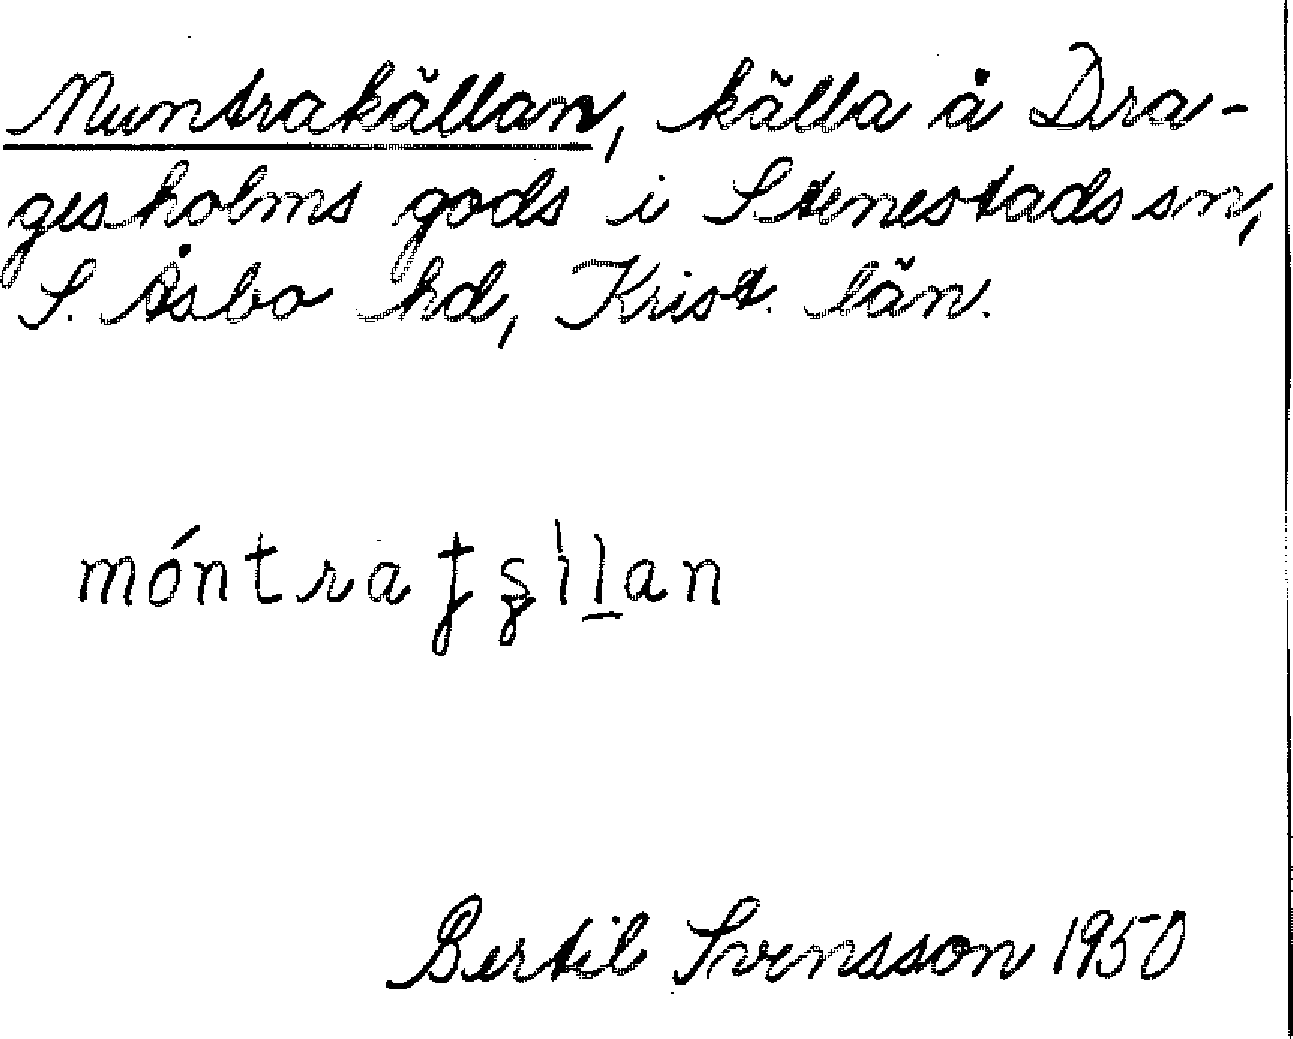 Muntrakällan, källa å Dra-
gesholms gods i Stenestads sn,
S. Åsbo hd, Krist. län.
Bertil Svensson 1950